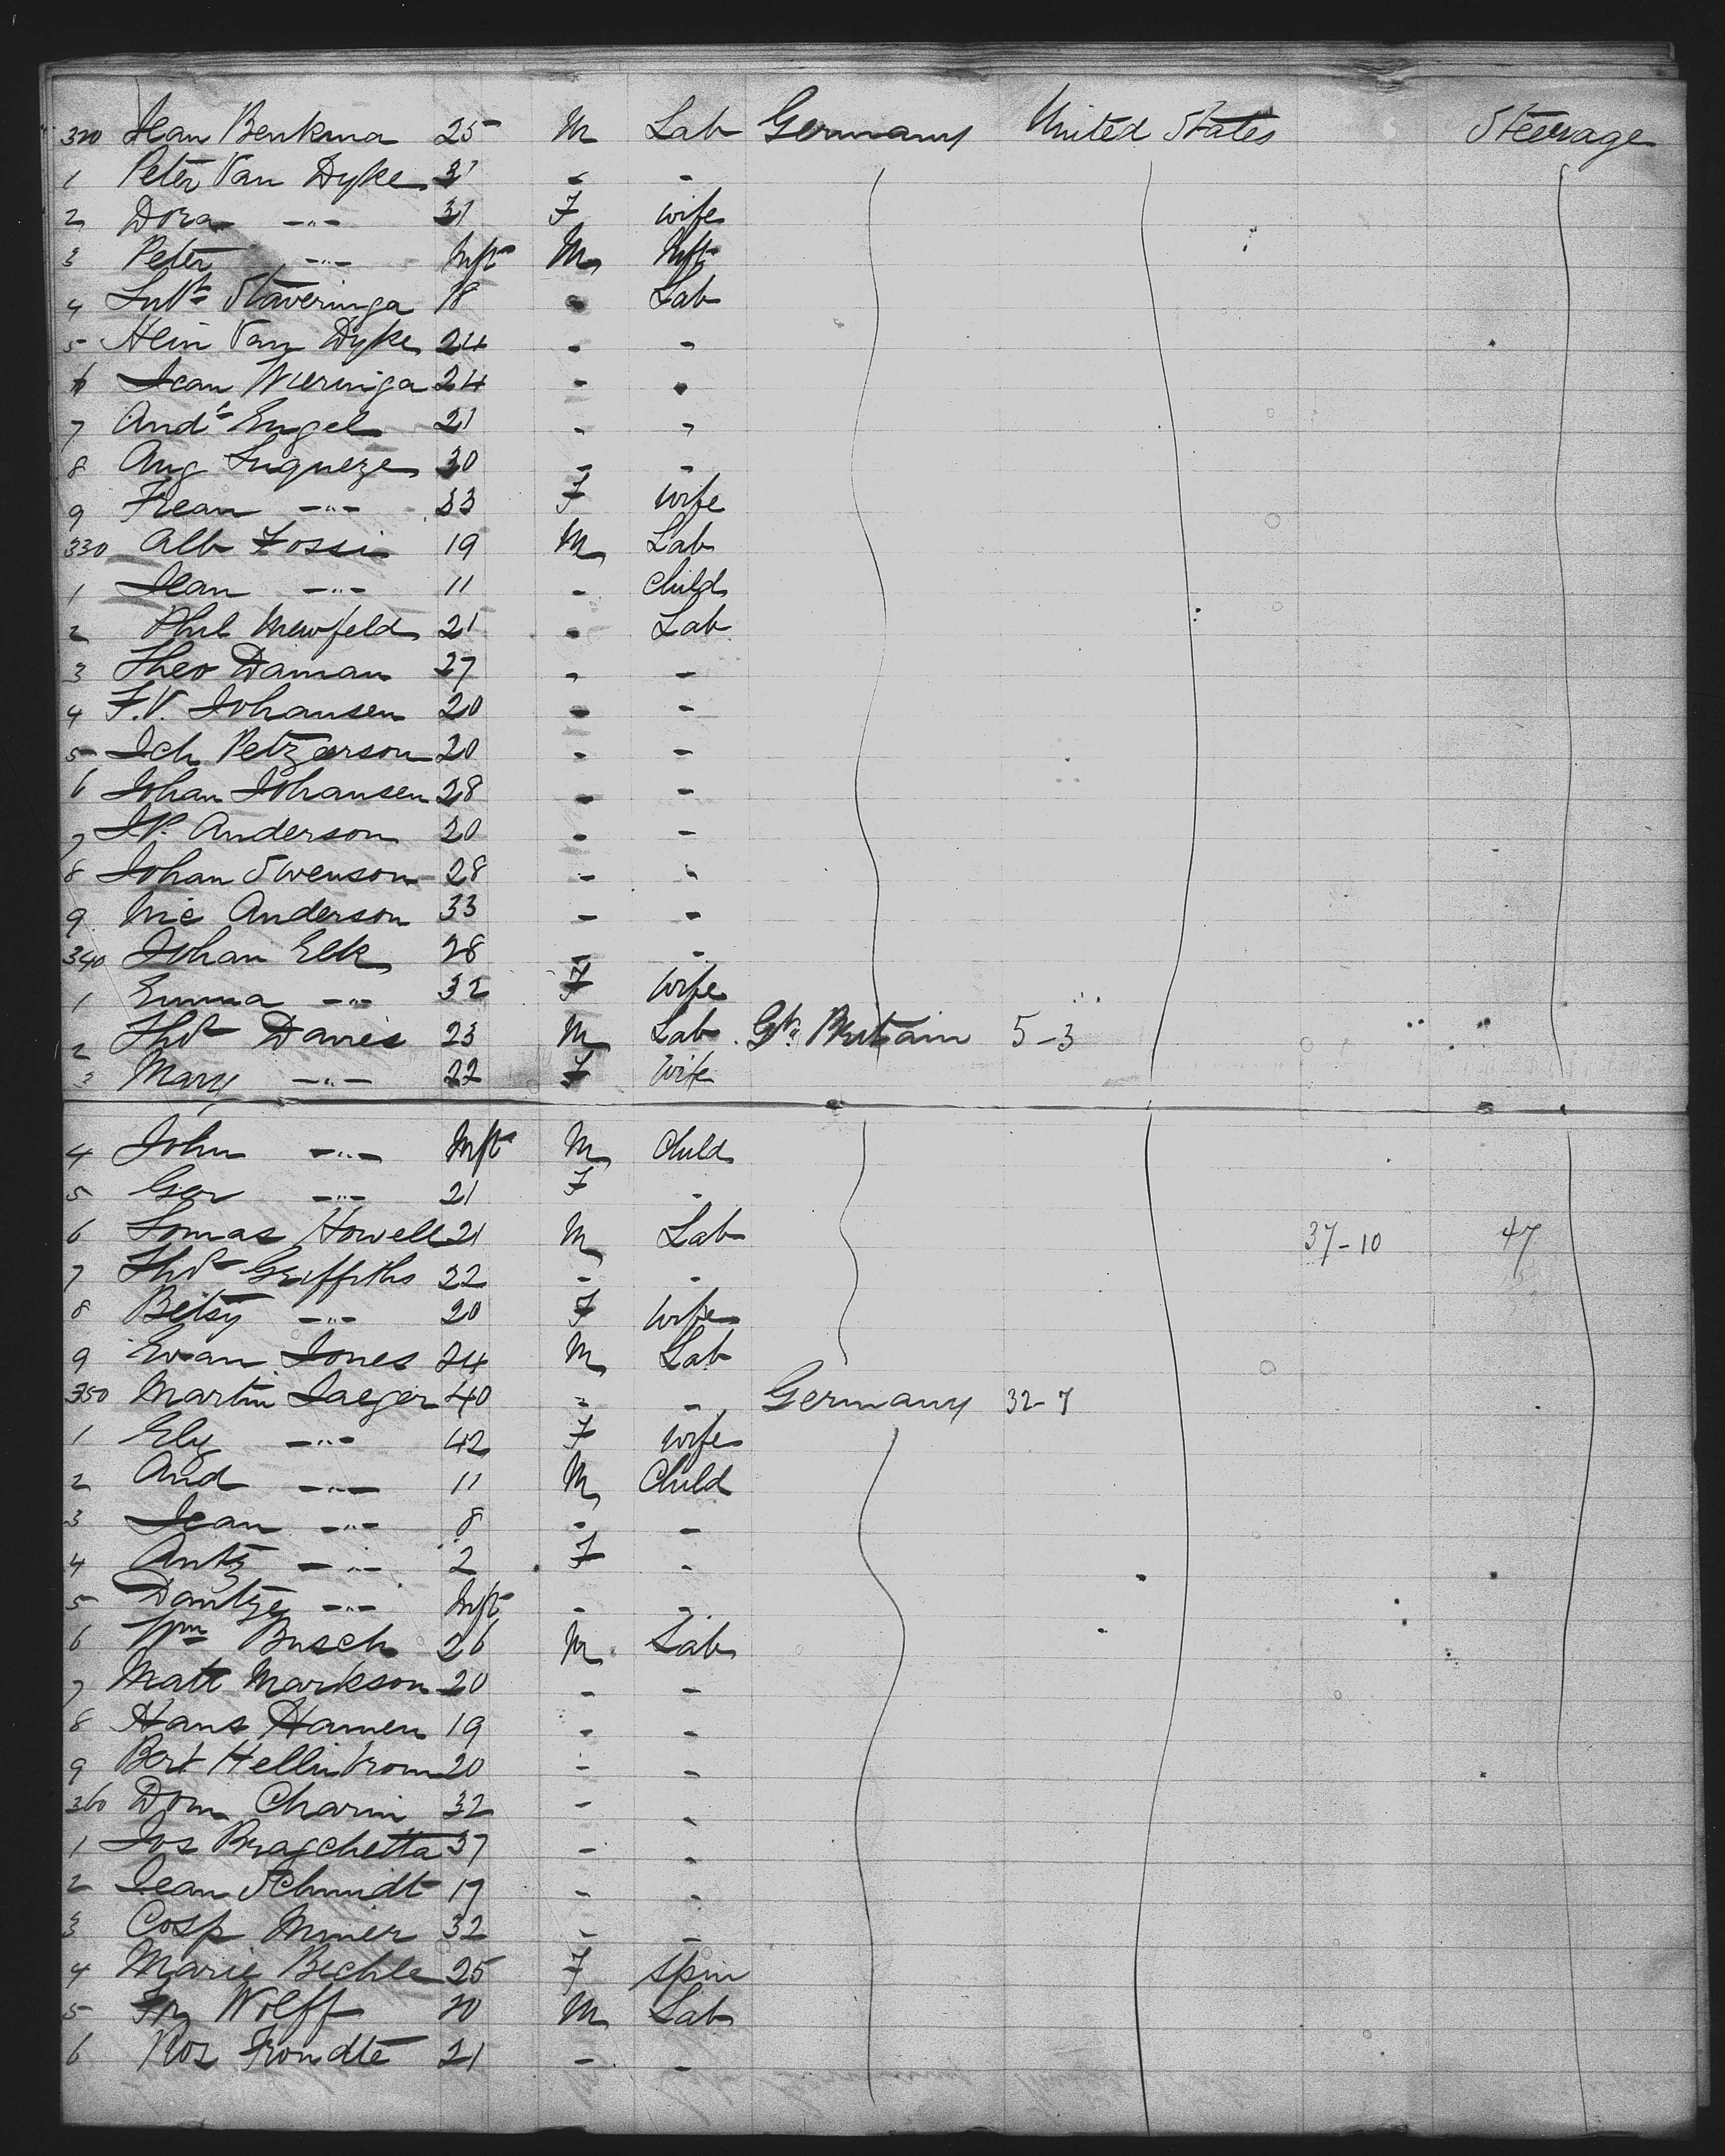 320 Jean Benkma 25 M Lab Germany United States Steerage
1 Peter Van Dyke 31 - -
2 Dora -"- 31 F wife
3 Peter -"- Inft M Inft
4 Staveringa 18 - Lab
5 Hein Van Dyke 24 - -
6 Jean Wieringa 24 - -
7 And. Engel 21 - -
8 Aug 30 - -
9 -"- 33 F wife
330 Alb Fossi 19 M Lab
1 Jean -"- 11 - Child
2 Phil Mewfeld 21 - Lab
3 Theo Daman 27 - -
4 F.V. Johansen 20 - -
5 Joh Petzarson 20 - -
6 Johan Johansen 28 - -
7 J.P. Anderson 20 - -
8 Johan Swenson 28 - -
9 Nic Anderson 33 - -
340 Johan Elk 28 - -
1 Emma -"- 32 F wife
2 Thos Davies 23 M Lab Gt. Britain 5-3
3 Mary -"- 22 F wife
4 John -"- Inft M Child
5 Geo -"- 21 F -
6 Lomas Howell 21 M Lab 37-10 47
7 Thos Griffiths 22 - -
8 Betsy -"- 20 F wife
9 Evan Jones 24 M Lab
350 Martin Jaeger 40 - - Germany 32-7
1 Ely -"- 42 F wife
2 And -"- 11 M Child
3 Jean -"- 8 - -
4 Antz -"- 2 F -
5 Dantze -"- Inft - -
6 Wm Busch 26 M Lab
7 Matt Markson 20 - -
8 Hans Hamen 19 - -
9 Bert Hellinstrom 20 - -
360 Dom Charini 32 - -
1 Jos Bragchetta 37 - -
2 Jean Schmidt 17 - -
3 Casp 32 - -
4 Marie Bechle 25 F Spin
5 Frz Wolff 20 M Lab
6 Frondte 21 - -